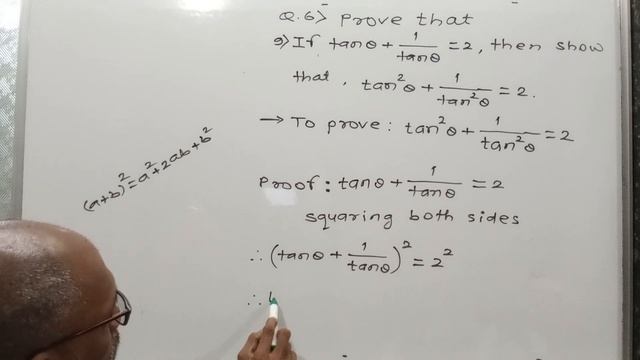 Q.6> Prove that
9) If tanθ + 1/tanθ = 2, then show
that, tan²θ + 1/tan²θ = 2.
→ To prove: tan²θ + 1/tan²θ = 2
(a+b)² = a² + 2ab + b²
Proof: tanθ + 1/tanθ = 2
squaring both sides
∴ (tanθ + 1/tanθ)² = 2²
∴